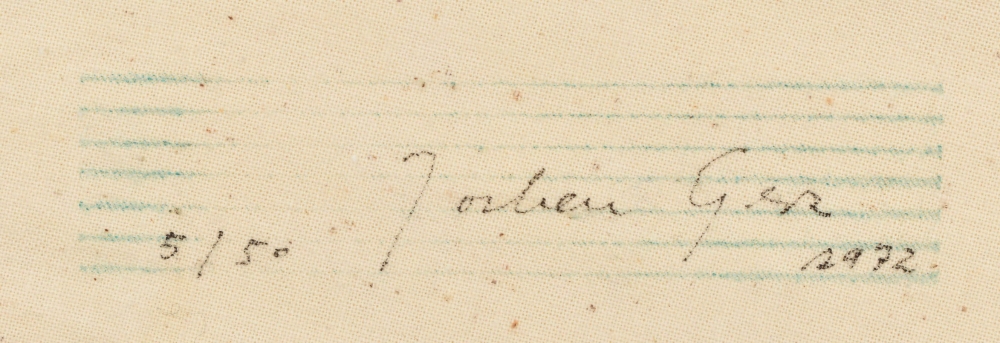 Jochen Gerz
5/50 1972